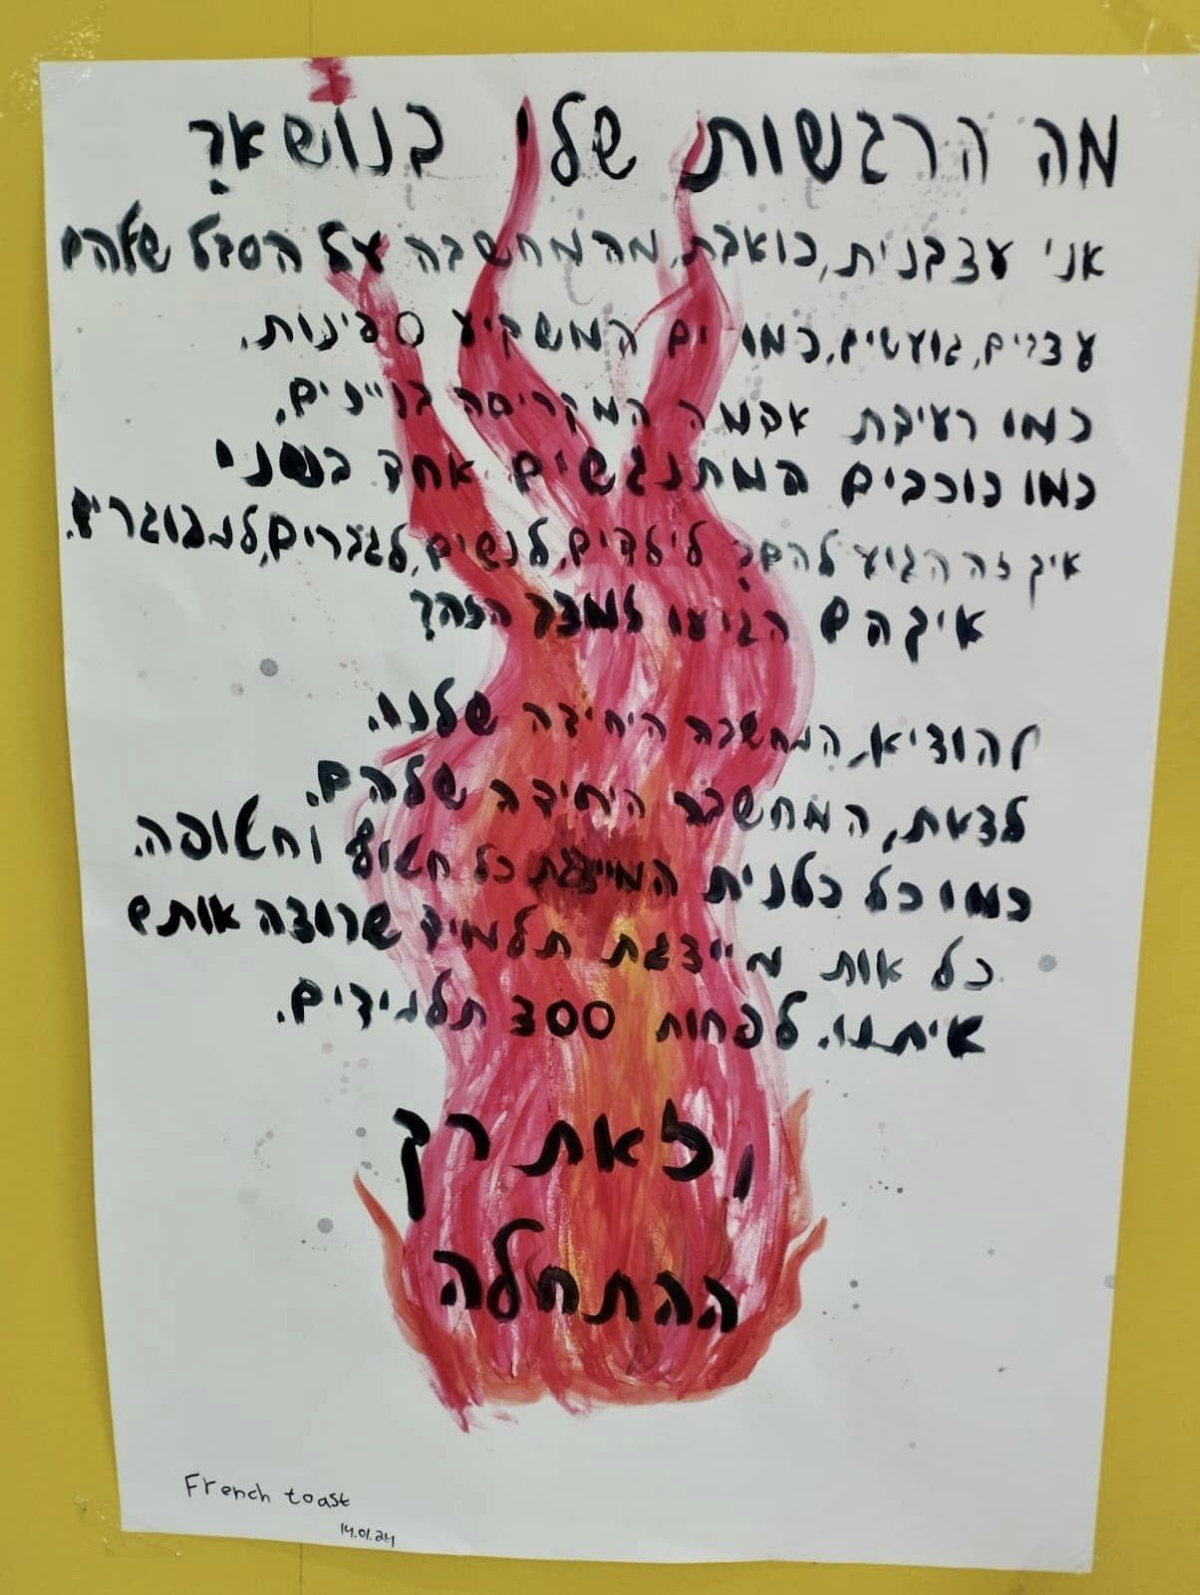 מה הרגשות שלי בנושא?
אני עצבנית, כואבת, מהמחשבה על הסבל שלהם
עצבים, גועשים, כמו ים המשקיע ספינות.
כמו רעידת אדמה המקריסה בניינים.
כמו כוכבים המתנגשים אחד בשני
איך זה הגיע להם? לילדים, לנשים, לגברים, למבוגרים.
איך הם הגיעו למצב הזה?
להוציא, המחשבה היחידה שלנו.
לצאת, המחשבה היחידה שלהם.
כמו כל כלנית המייצגת כל חטוף וחטופה.
כל אות מייצגת תלמיד שרוצה אותם
איתנו. לפחות 300 תלמידים.
וזאת רק
ההתחלה
French toast
14.01.24